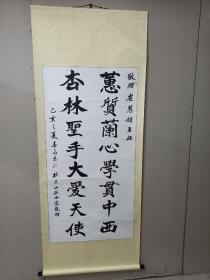 敬贈崔慧娟主任
蕙質蘭心學貫中西
杏林聖手大愛天使
己亥之夏